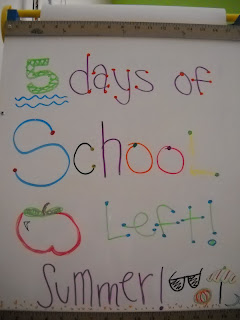 5 days of
School
Left!
Summer!